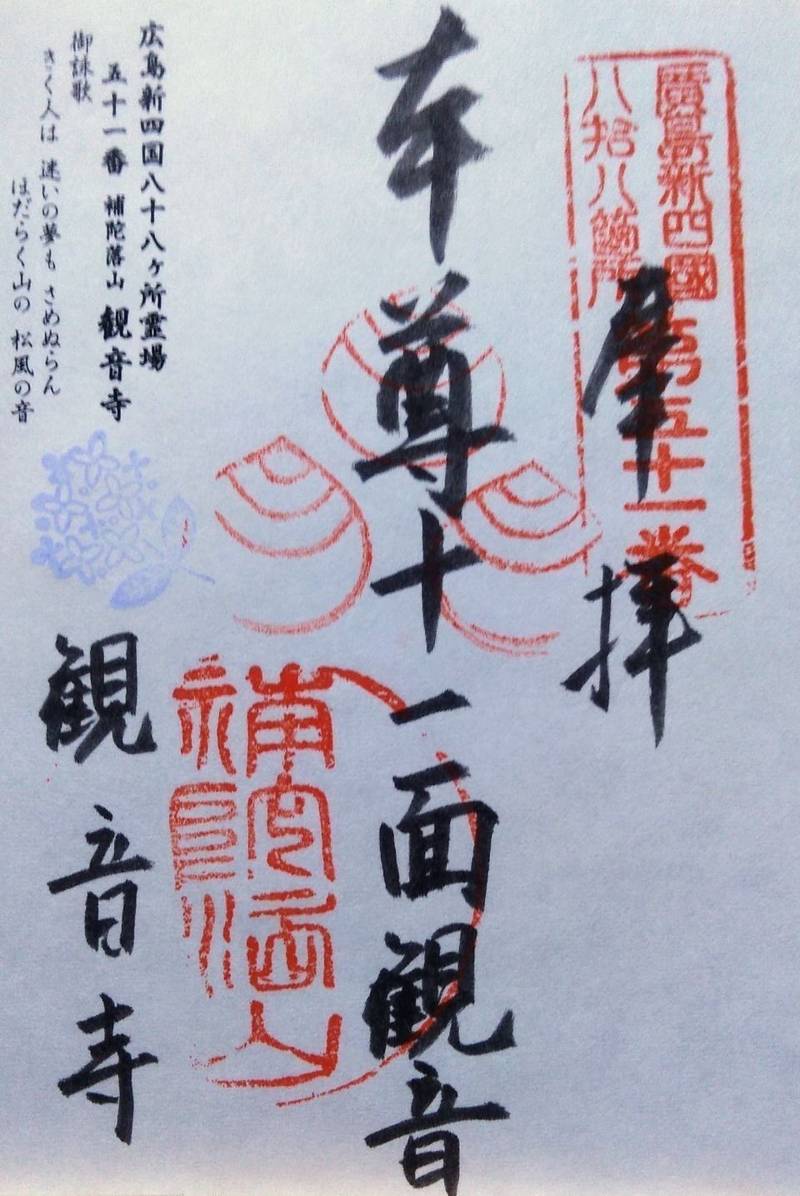 廣島新四國第五十一番
八拾八箇所
奉拝
本尊十一面観音
観音寺
広島新四国八十八ヶ所霊場
五十一番 補陀落山 観音寺
御詠歌
きく人は 迷いの夢も さめぬらん
ほだらく山の 松風の音